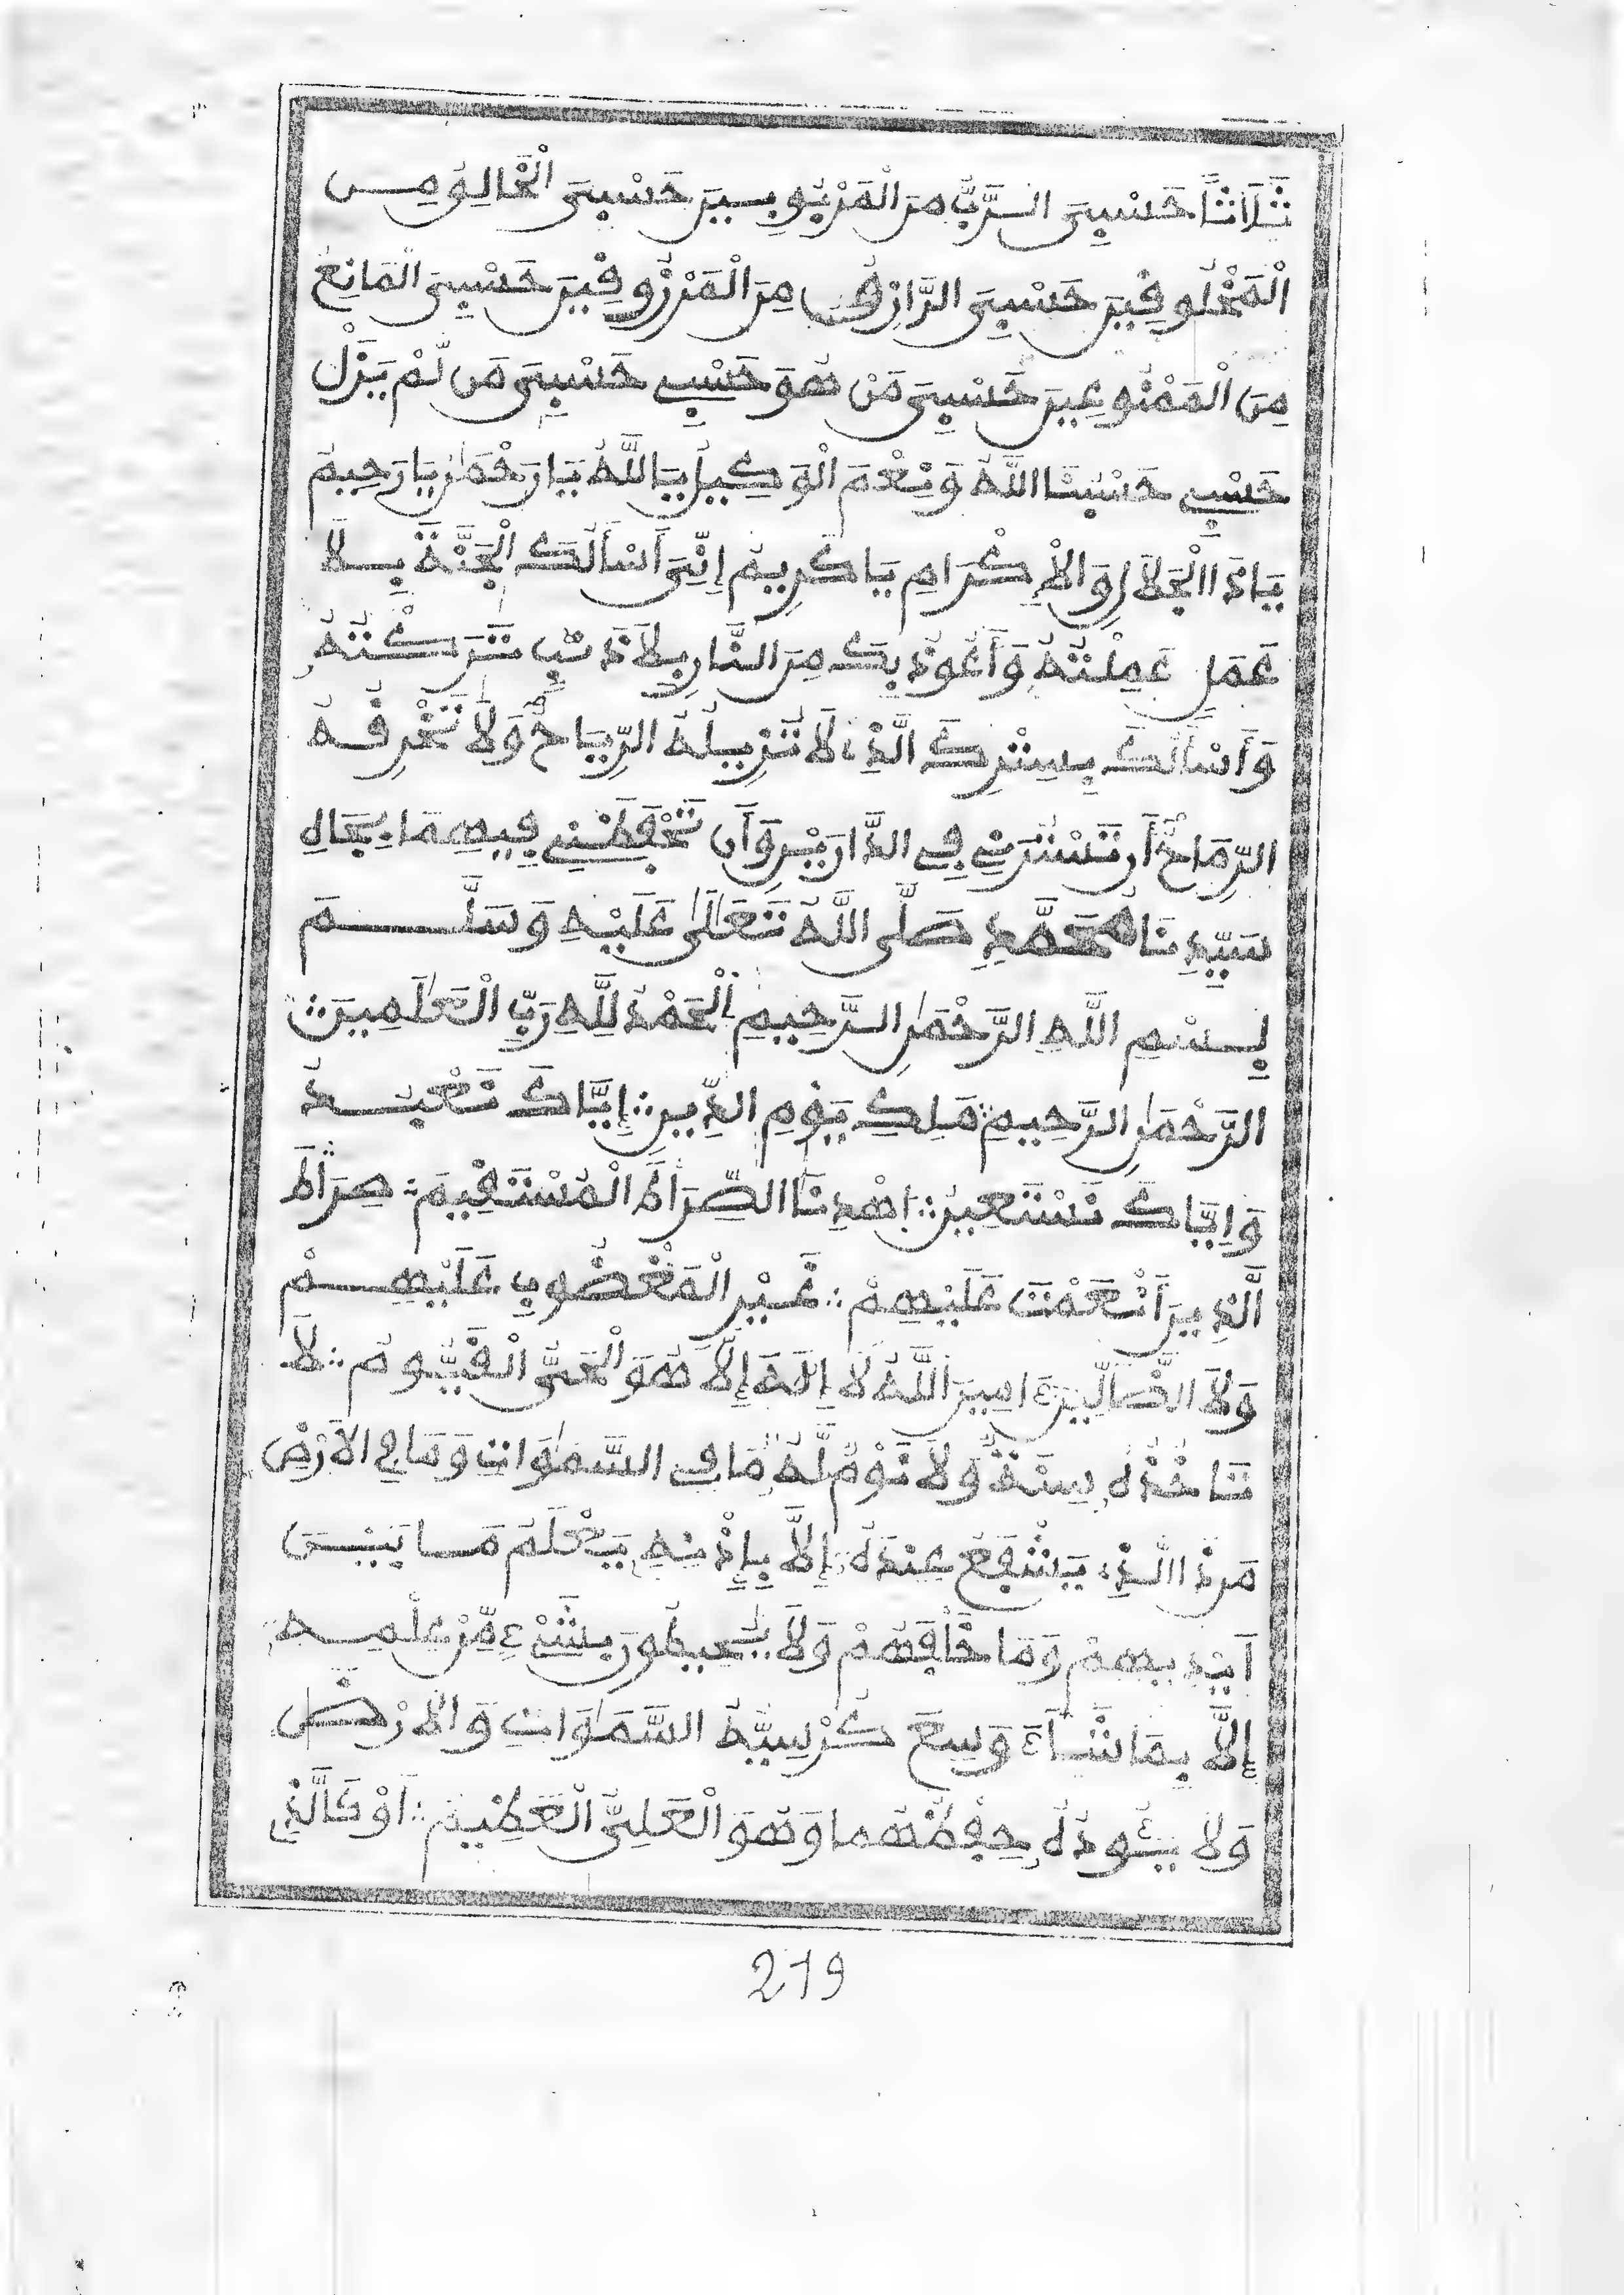 ثَلَاثًا حَسْبِيَ الرَّبُّ مِنَ الْمَرْبُوبِينَ حَسْبِيَ الْخَالِقُ مِنَ
الْمَخْلُوقِينَ حَسْبِيَ الرَّازِقُ مِنَ الْمَرْزُوقِينَ حَسْبِيَ الْمَانِعُ
مِنَ الْمَمْنُوعِينَ حَسْبِيَ مَنْ هُوَ حَسْبِي حَسْبِيَ مَن لَّمْ يَزَلْ
حَسْبِي حَسْبُنَا اللَّهُ وَنِعْمَ الْوَكِيلُ يَا اللَّهُ يَا رَحْمَٰنُ يَا رَحِيمُ
يَا ذَا الْجَلَالِ وَالْإِكْرَامِ يَا كَرِيمُ إِنِّيَ أَسْأَلُكَ الْجَنَّةَ بِلَا
عَمَلٍ عَمِلْتُهُ وَأَعُوذُ بِكَ مِنَ النَّارِ بِلَا ذَنْبٍ تَرَكْتُهُ
وَأَسْأَلُكَ بِسِتْرِكَ الَّذِي لَا تُزِيلُهُ الرِّيَاحُ وَلَا تَخْرِقُهُ
الرِّمَاحُ أَن تَسْتُرَنِي فِي الدَّارَيْنِ وَأَن تَحْفَظَنِي فِيهِمَا بِجَاهِ
سَيِّدِنَا مُحَمَّدٍ صَلَّى اللَّهُ تَعَالَىٰ عَلَيْهِ وَسَلَّمَ
بِسْمِ اللَّهِ الرَّحْمَٰنِ الرَّحِيمِ الْحَمْدُ لِلَّهِ رَبِّ الْعَٰلَمِينَ
الرَّحْمَٰنِ الرَّحِيمِ مَلِكِ يَوْمِ الدِّينِ إِيَّاكَ نَعْبُدُ
وَإِيَّاكَ نَسْتَعِينُ اهْدِنَا الصِّرَاطَ الْمُسْتَقِيمَ صِرَاطَ
الَّذِينَ أَنْعَمْتَ عَلَيْهِمْ غَيْرِ الْمَغْضُوبِ عَلَيْهِمْ
وَلَا الضَّالِّينَ ءَامِينَ اللَّهُ لَا إِلَٰهَ إِلَّا هُوَ الْحَيُّ الْقَيُّومُ لَا
تَاخُذُهُ سِنَةٌ وَلَا نَوْمٌ لَّهُ مَا فِي السَّمَٰوَاتِ وَمَا فِي الْأَرْضِ
مَن ذَا الَّذِي يَشْفَعُ عِندَهُ إِلَّا بِإِذْنِهِ يَعْلَمُ مَا بَيْنَ
أَيْدِيهِمْ وَمَا خَلْفَهُمْ وَلَا يُحِيطُونَ بِشَيْءٍ مِّنْ عِلْمِهِ
إِلَّا بِمَا شَاءَ وَسِعَ كُرْسِيُّهُ السَّمَٰوَاتِ وَالْأَرْضَ
وَلَا يَئُودُهُ حِفْظُهُمَا وَهُوَ الْعَلِيُّ الْعَظِيمُ أَوْ كَالَّذِي
219